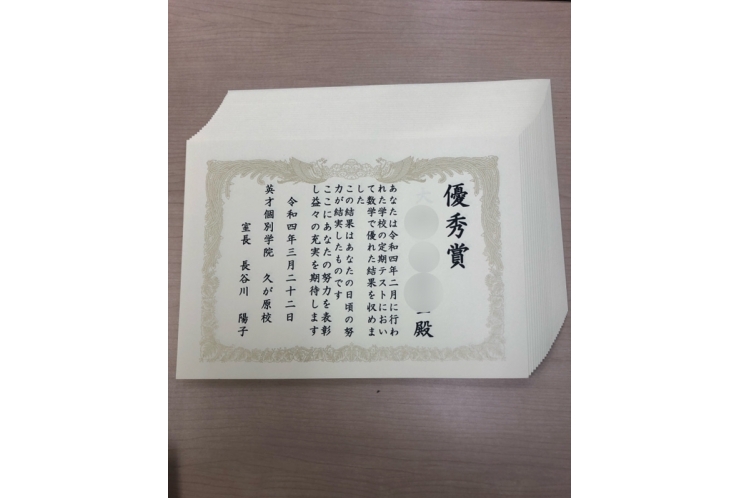 優秀賞
殿
あなたは令和四年二月に行わ
れた学校の定期テストにおい
て数学で優れた結果を収めま
した
この結果はあなたの日頃の努
力が結実したものです
ここにあなたの努力を表彰
し益々の充実を期待します
令和四年三月二十二日
英才個別学院 久が原校
室長 長谷川 陽子